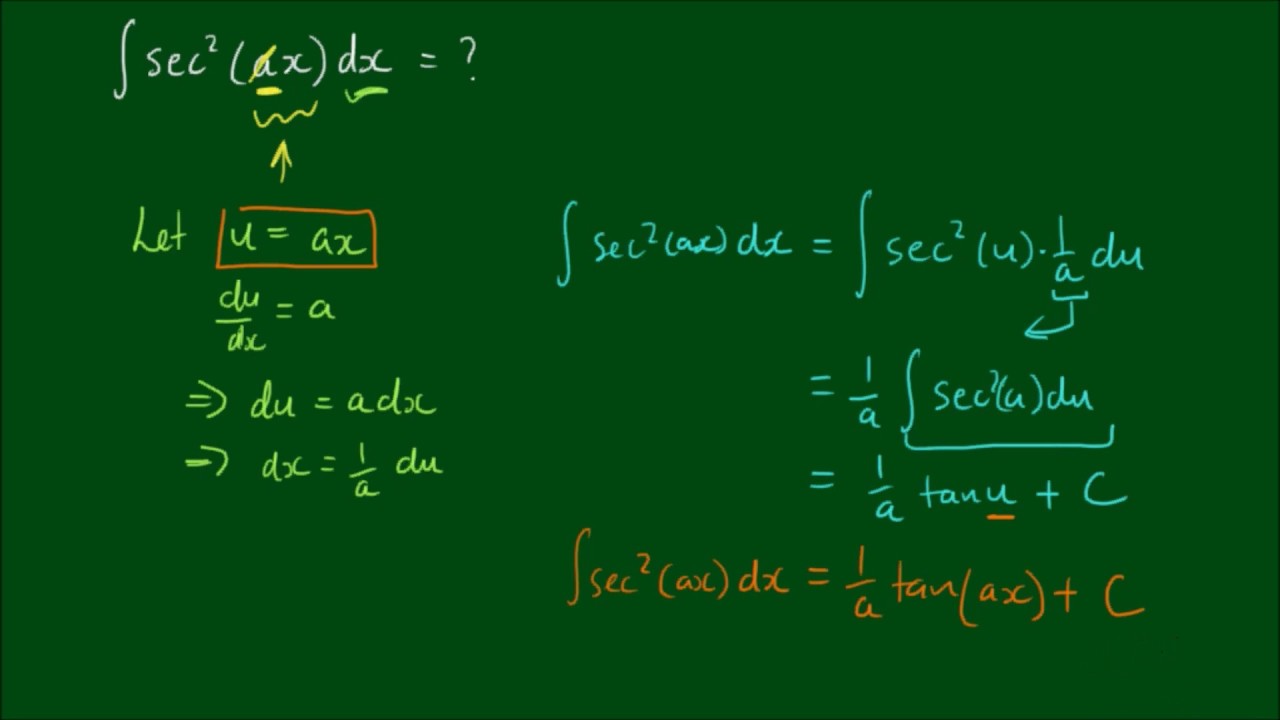 ∫ sec² (ax) dx = ?
Let u = ax
du/dx = a
⇒ du = a dx
⇒ dx = 1/a du
∫ sec² (ax) dx = ∫ sec² (u) · 1/a du
= 1/a ∫ sec² (u) du
= 1/a tan u + C
∫ sec² (ax) dx = 1/a tan(ax) + C